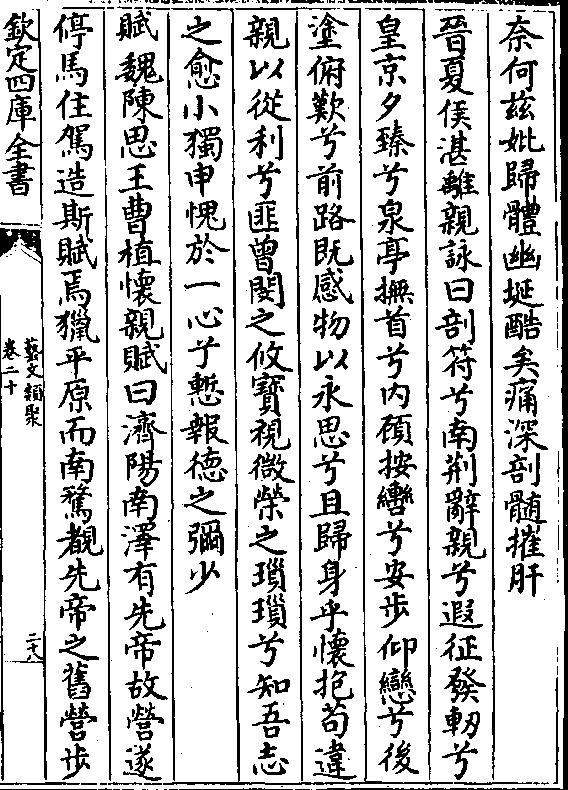 奈何兹妣歸體幽埏酷矣痛深剖髄摧肝
晉夏侯湛離親詠曰剖符兮南荆辭親兮遐征發軔兮
皇京夕臻兮泉亭撫首兮内顧按轡兮安步仰戀兮後
塗俯歎兮前路既感物以永思兮且歸身乎懷抱苟違
親以從利兮匪曾閔之攸寳視微榮之瑣瑣兮知吾志
之愈小獨申愧於一心兮慙報德之彌少
賦魏陳思王曹植懷親賦曰濟陽南澤有先帝故營遂
停馬住駕造斯賦焉獵平原而南騖覩先帝之舊營步
欽定四庫全書
藝文類聚
卷二十
二十八